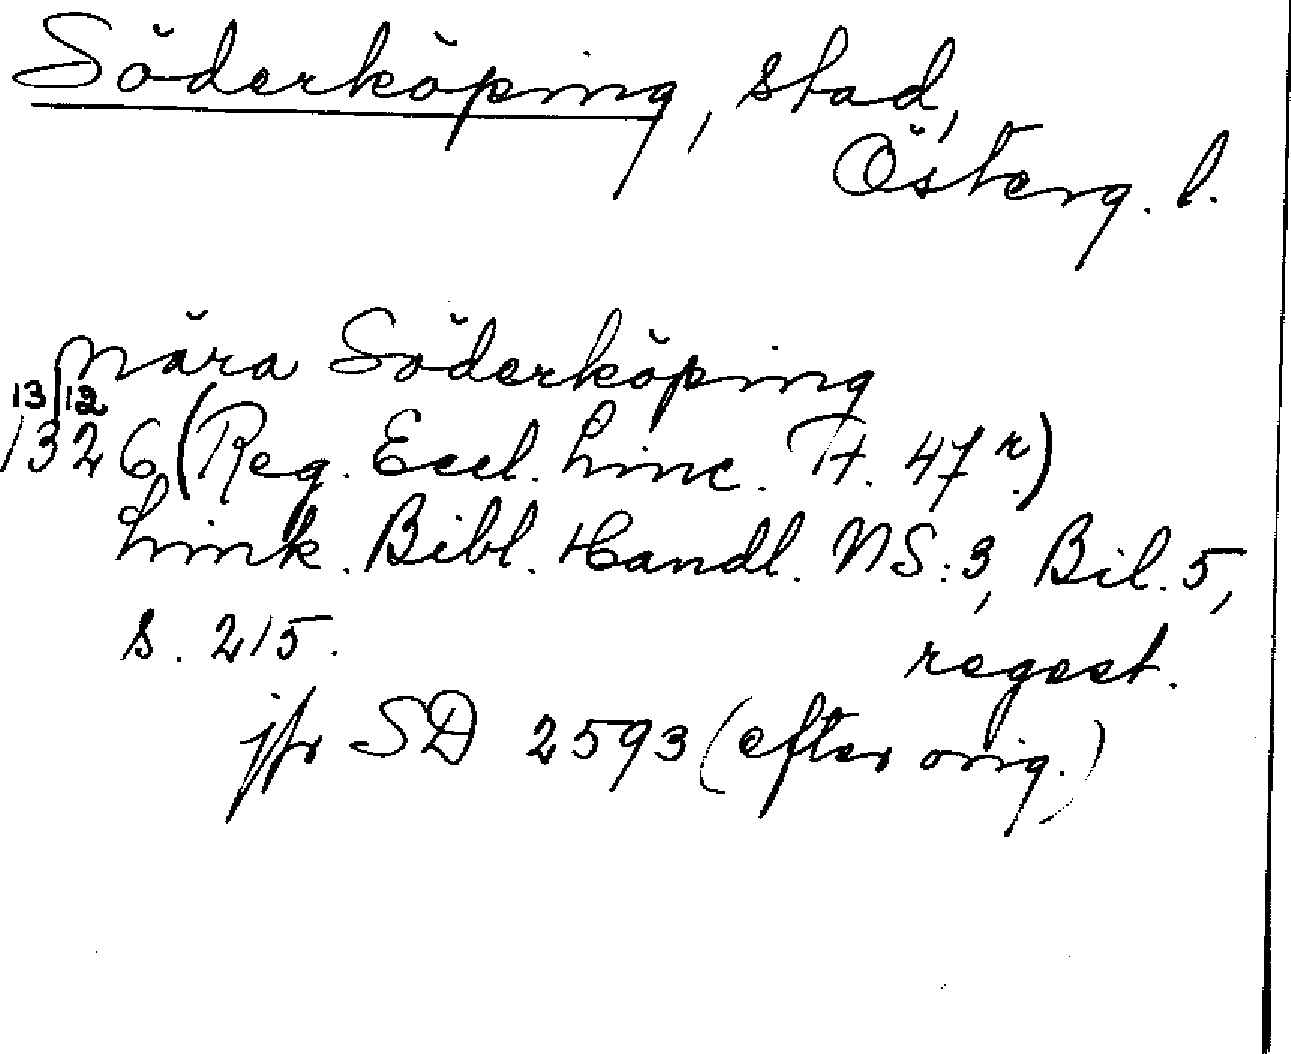 Söderköping, stad,
Österg. l.
nära Söderköping
13/12
1326 (Reg. Eccl. Linc. Ft. 47 r.)
Link. Bibl. Handl. NS:3, Bil. 5,
s. 215. regest.
jfr SD 2593 (efter orig.)